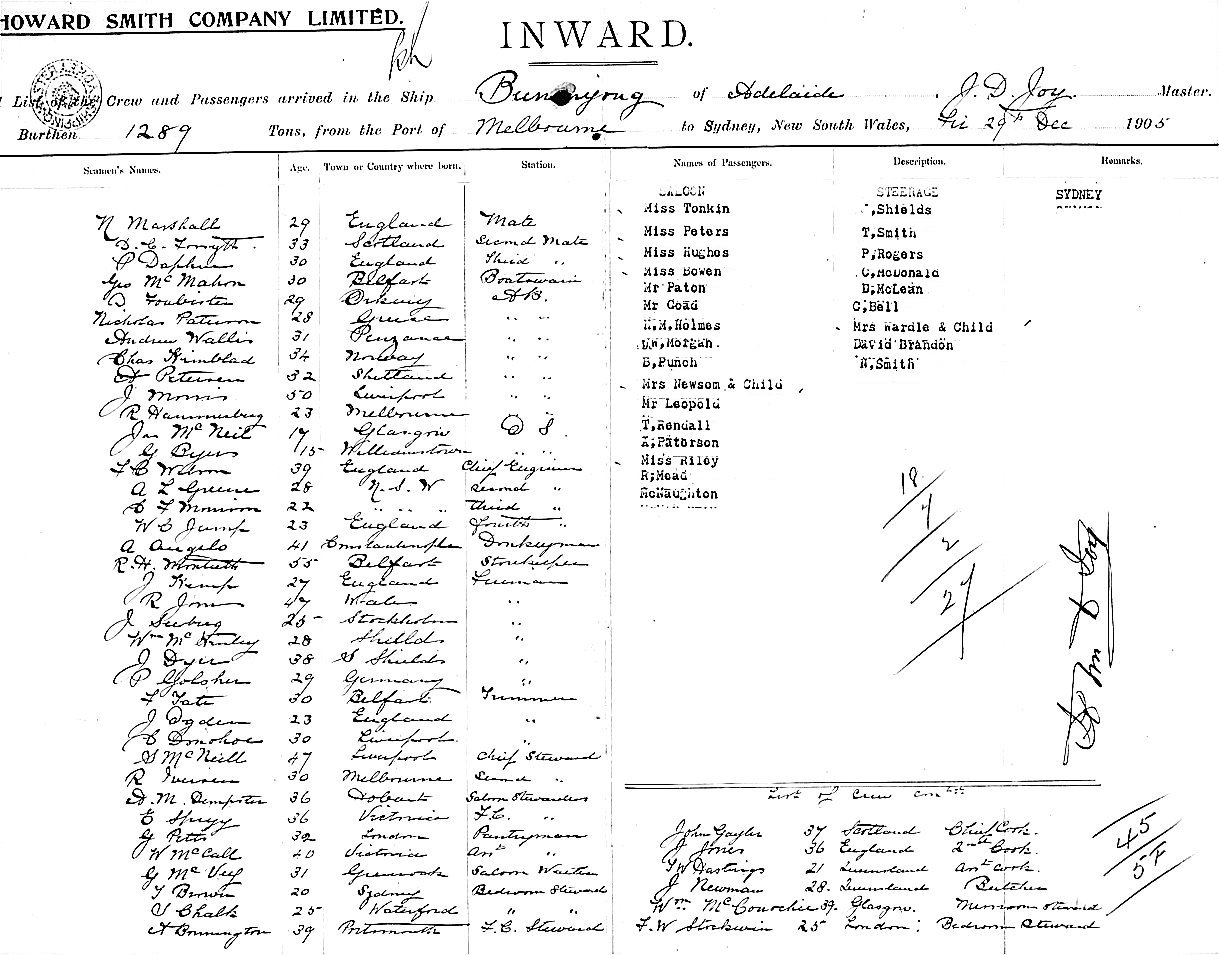 HOWARD SMITH COMPANY LIMITED.
INWARD.
List of the Crew and Passengers arrived in the Ship Buninyong of Adelaide, J. D. Joy Master.
Burthen 1289 Tons, from the Port of Melbourne to Sydney, New South Wales, Fri 29th Dec 1905
Seamen's Names. Age. Town or Country where born. Station. Names of Passengers. Description. Remarks.
SALOON STEERAGE SYDNEY
Miss Tonkin Shields
Miss Peters T, Smith
Miss Hughes P, Rogers
Miss Bowen C, McDonald
Mr Paton D, McLean
Mr Coad C, Bell
M. Holmes Mrs Wardle & Child
W, Morgan. David Brandon
B, Punch W, Smith
Mrs Newsom & Child
Mr Leopold
T, Rendall
K, Paterson
Miss Riley
R, Mead
McNaughton
N Marshall 29 England Mate
D. C. Forsyth 33 Scotland Second Mate
P Daphne 30 England Third "
Geo McMahon 30 Belfast Boatswain
D Foubister 29 Orkney A B.
Nicholas Paterson 28 Greece " "
Andrew Wallis 31 Penzance " "
Chas Kimblad 34 Norway " "
A Petersen 32 Shetland " "
J Morris 50 Liverpool " "
R Hammerberg 23 Melbourne " "
Jas McNeil 19 Glasgow O S.
G Byers 15 Williamstown " "
F C Wilson 39 England Chief Engineer
A L Greene 28 N. S. W second "
C F Morrison 22 " " " third "
W C Jump 23 England fourth "
A Angelo 41 Constantinople Donkeyman
R. H. Monteith 55 Belfast Storekeeper
J Kemp 27 England Fireman
R Jones 47 Wales "
J Seeberg 25 Stockholm "
Wm McKinley 28 Shields "
J Dyer 38 S Shields "
P Golsher 29 Germany "
F Tate 30 Belfast Trimmer
J Ogden 23 England "
C Donohoe 30 Liverpool "
S McNeill 47 Liverpool Chief Steward
R Iversen 30 Melbourne Second "
A. M. Dempster 36 Hobart Saloon Stewardess
E Spry 36 Victoria F.C. "
G Petts 32 London Pantryman
W McCall 40 Victoria Asst "
G McVey 31 Greenock Saloon Waiter
T Brown 20 Sydney Bedroom Steward
S Chalk 25 Waterford " "
A Bonnington 39 Portsmouth F. C. Steward
18
7
2
27
List of Crew contd
John Gayler 37 Scotland Chief Cook.
J Jones 36 England 2nd Cook.
W Hastings 21 Queensland Asst Cook.
J Newman 28. Queensland Butcher
Wm McConechie 39. Glasgow. Messroom Steward
F. W Stockwin 25 London: Bedroom Steward
45